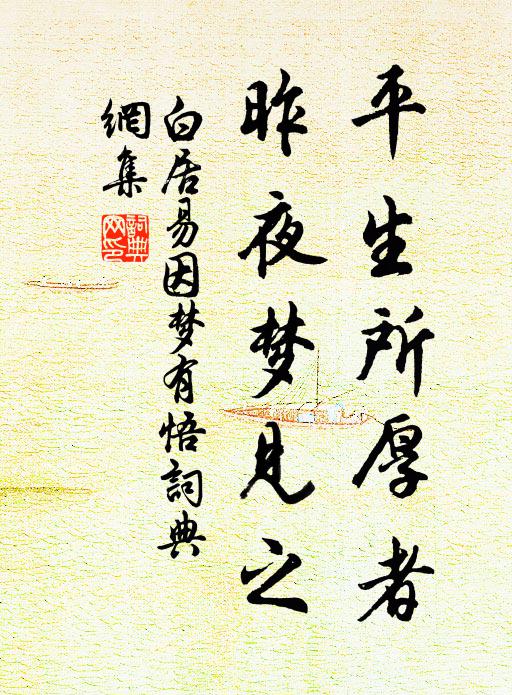 平生所厚者
昨夜梦見之
白居易因梦有悟詞典
網集
詞典
网印